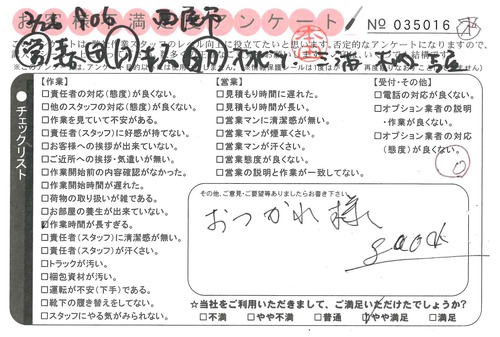 お 満足 アンケート No 035016
春日
チェックリスト
【作業】
□責任者(態度)が良くない。
□他のスタッフの対応(態度)が良くない。
□作業を見ていて不安がある。
□責任者(スタッフ)に好感が持てない。
□お客様への挨拶が出来ていない。
□ご近所への挨拶・気遣いが無い。
□作業開始前の内容確認がなかった。
□作業開始時間が遅れた。
□荷物の取り扱いが雑である。
□お部屋の養生が出来ていない。
□作業時間が長すぎる。
□責任者(スタッフ)に清潔感が無い。
□責任者(スタッフ)が汗くさい。
□トラックが汚い。
□梱包資材が汚い。
□運転が不安(下手)である。
□靴下の履き替えをしてない。
□スタッフにやる気がみられない。
【営業】
□見積もり時間に遅れた。
□見積もり時間が長い。
□営業マンに清潔感が無い。
□営業マンが煙草くさい。
□営業マンが汗くさい。
□営業態度が良くない。
□営業の説明と作業が一致してない。
【受付・その他】
□電話の対応が良くない。
□オプション業者の説明
・作業が良くない。
□オプション業者の対応
(態度)が良くない。
その他、ご意見・ご要望等ありましたらお書き下さい。
おつかれ様
good
☆当社をご利用いただきまして、ご満足いただけたでしょうか?
□不満 □やや不満 □普通 □やや満足 □満足